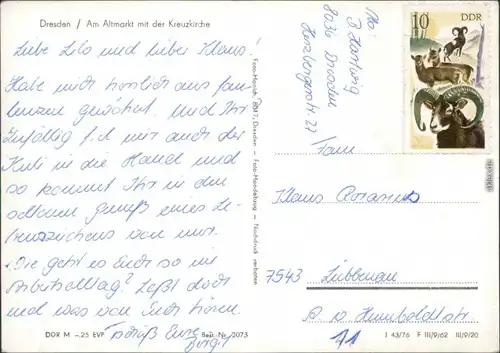 Dresden / Am Altmarkt mit der Kreuzkirche
Liebe Lilo und lieber Klaus!
Habe mich herrlich ans fau-
lenzen gewöhnt. Und Ihr
Zufällig f.l mir auch der
Kuli in die Hand und
so kommt Ihr in den
seltenen Genuß eines Le-
benszeichens von mir.
Wie geht es Euch so im
Arbeitsalltag? Laßt doch
mal was von Euch hören.
Tschüß Eure
Birgit
DDR M –.25 EVP Best.-Nr. 2073
Foto-Handrick 8017, Dresden – Foto-Mandelbaug – Nachdruck verboten
B. Hartwig
8036 Dresden
Herzbergerstr. 27
10 DDR
Fam
Klaus
7543 Lübbenau
A. v. Humboldtstr
71
J 43/76 F III/9/62 III/9/20